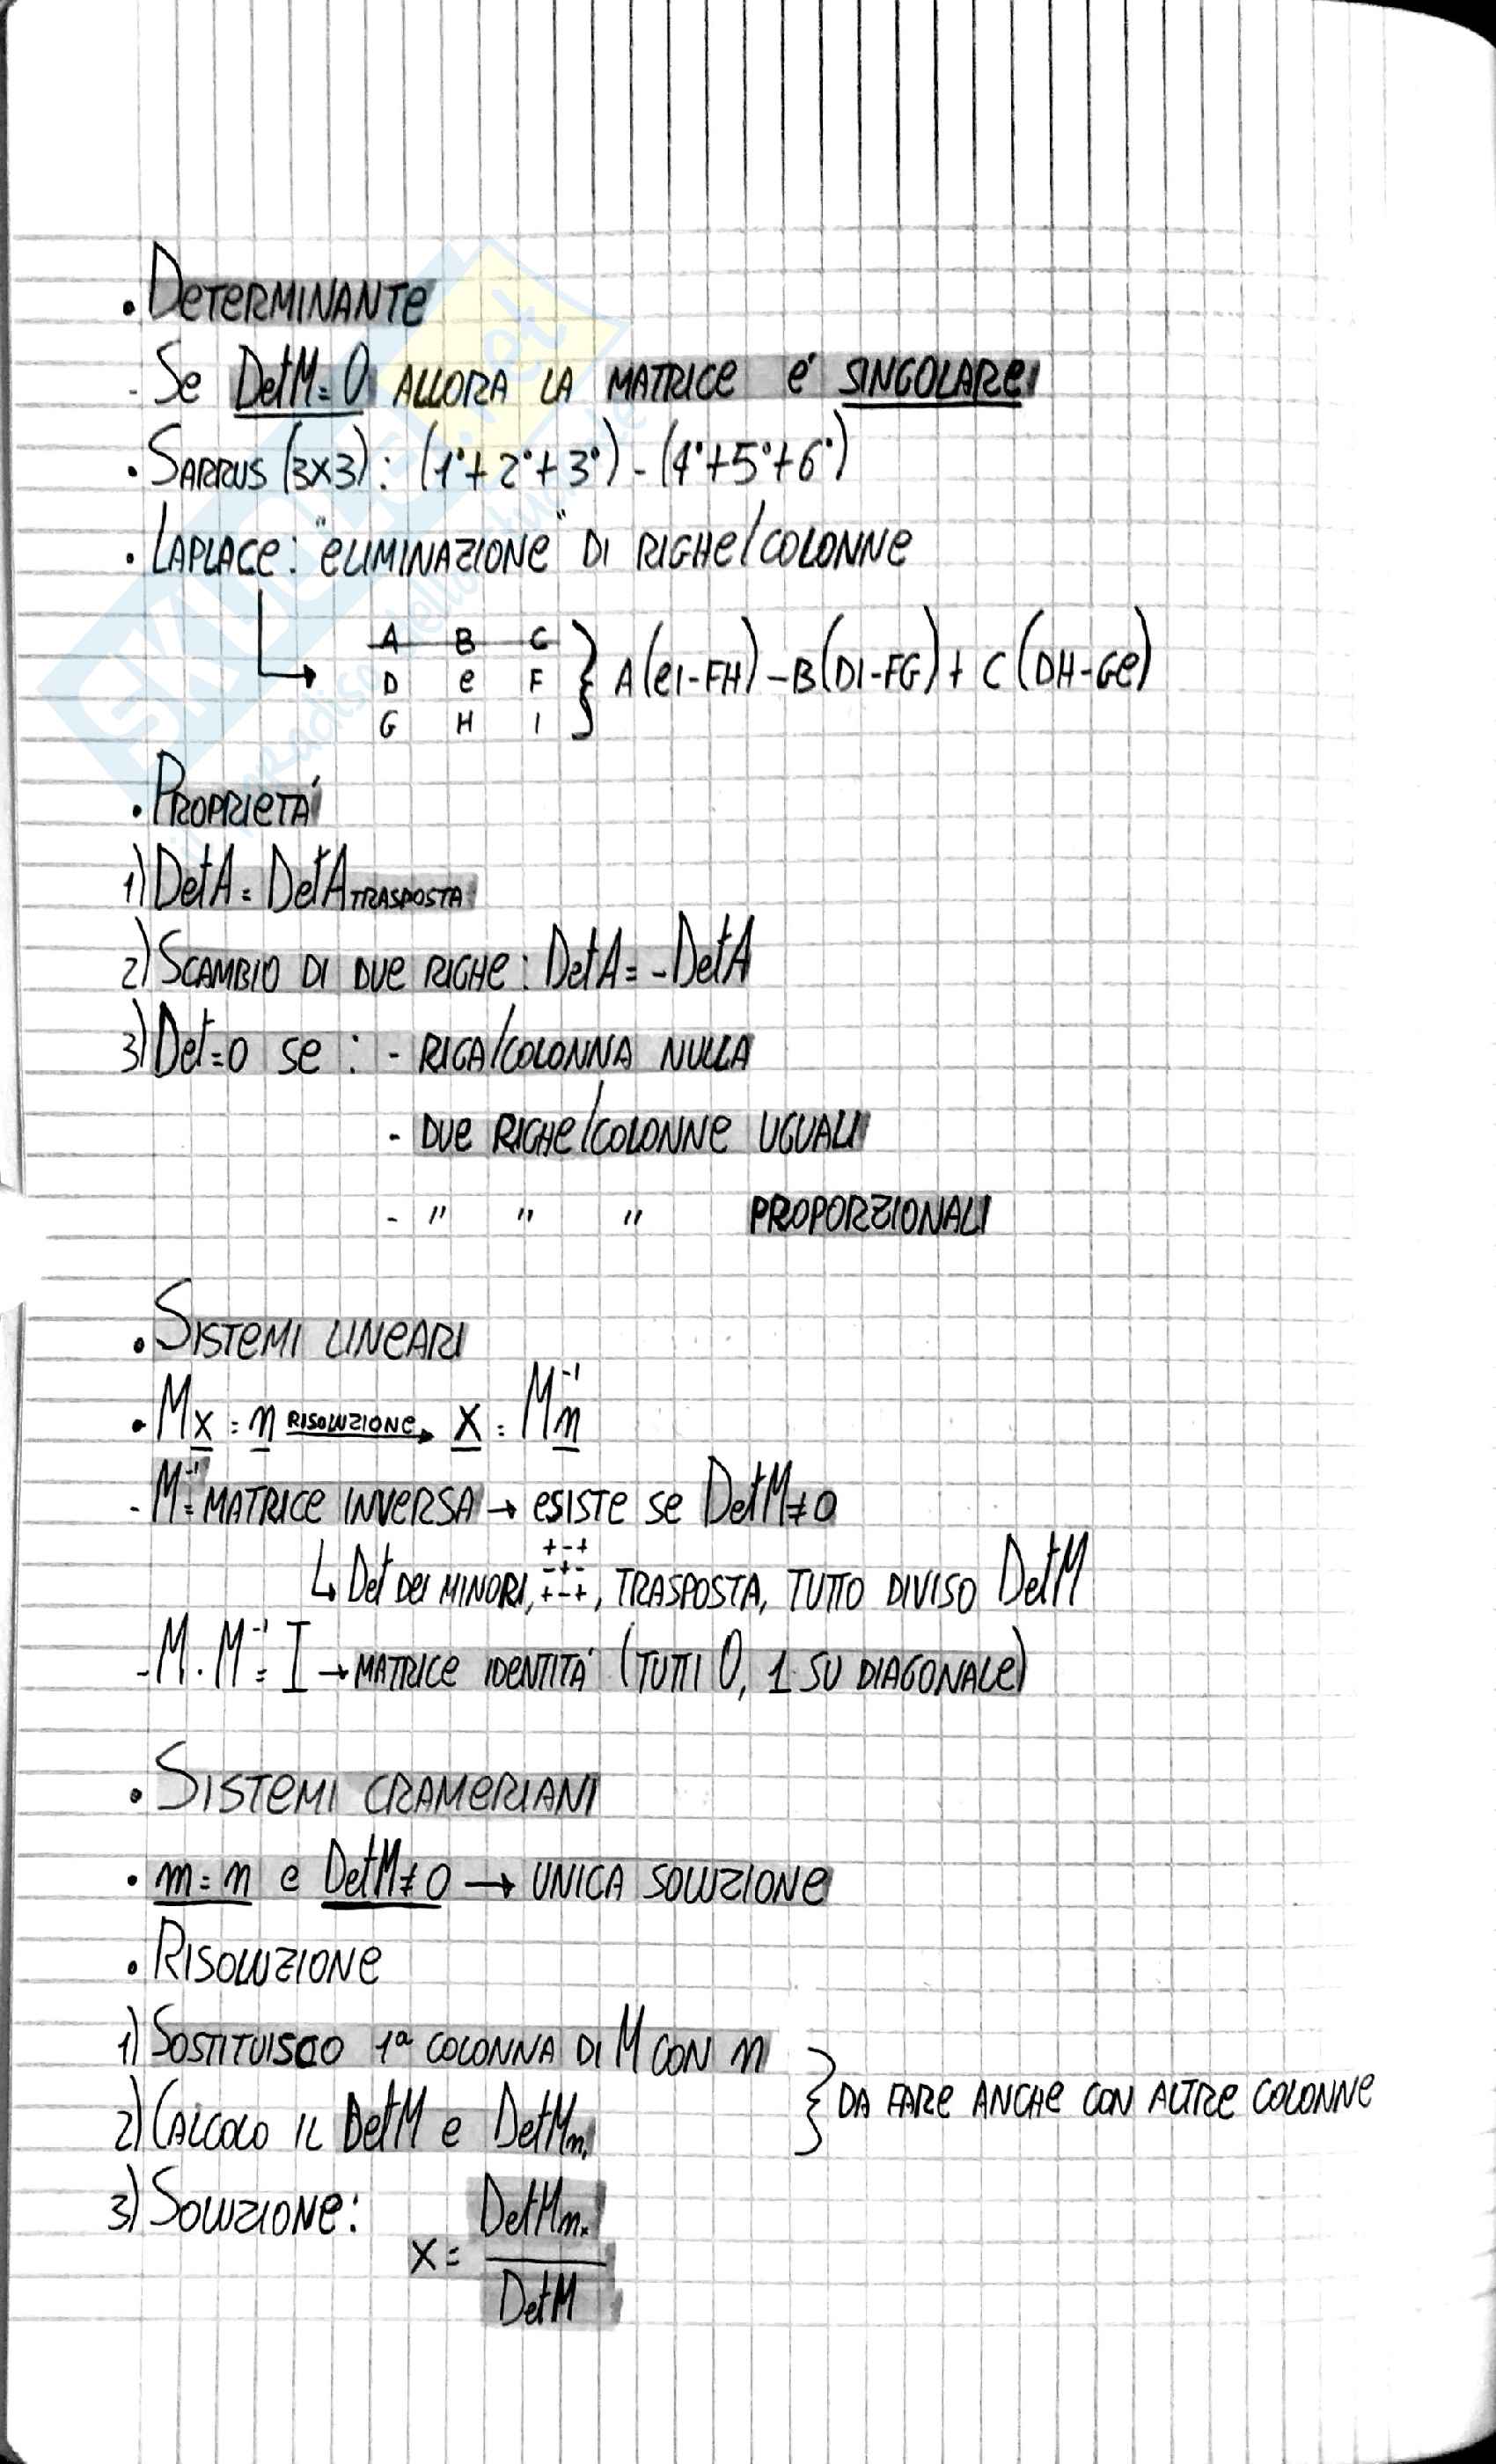 • DETERMINANTE
- SE DetM=0 ALLORA LA MATRICE É SINGOLARE
• SARRUS (3X3): (1°+2°+3°)-(4°+5°+6°)
• LAPLACE: "ELIMINAZIONE" DI RIGHE/COLONNE
A B C
D E F } A(EI-FH)-B(DI-FG)+C(DH-GE)
G H I
• PROPRIETÁ
1) DetA = DetA TRASPOSTA
2) SCAMBIO DI DUE RIGHE: DetA = -DetA
3) Det=0 SE: - RIGA/COLONNA NULLA
- DUE RIGHE/COLONNE UGUALI
- " " " PROPORZIONALI
• SISTEMI LINEARI
• Mx = n RISOLUZIONE→ x = M⁻¹n
- M⁻¹= MATRICE INVERSA → ESISTE SE DetM≠0
↳ Det DEI MINORI, +-+ -+- +-+, TRASPOSTA, TUTTO DIVISO DetM
- M·M⁻¹= I → MATRICE IDENTITÁ (TUTTI 0, 1 SU DIAGONALE)
• SISTEMI CRAMERIANI
• m=n e DetM≠0 → UNICA SOLUZIONE
• RISOLUZIONE
1) SOSTITUISCO 1ª COLONNA DI M CON n
} DA FARE ANCHE CON ALTRE COLONNE
2) CALCOLO IL DetM e DetMn₁
3) SOLUZIONE: x = DetMnₓ
DetM
SKUOLA.net